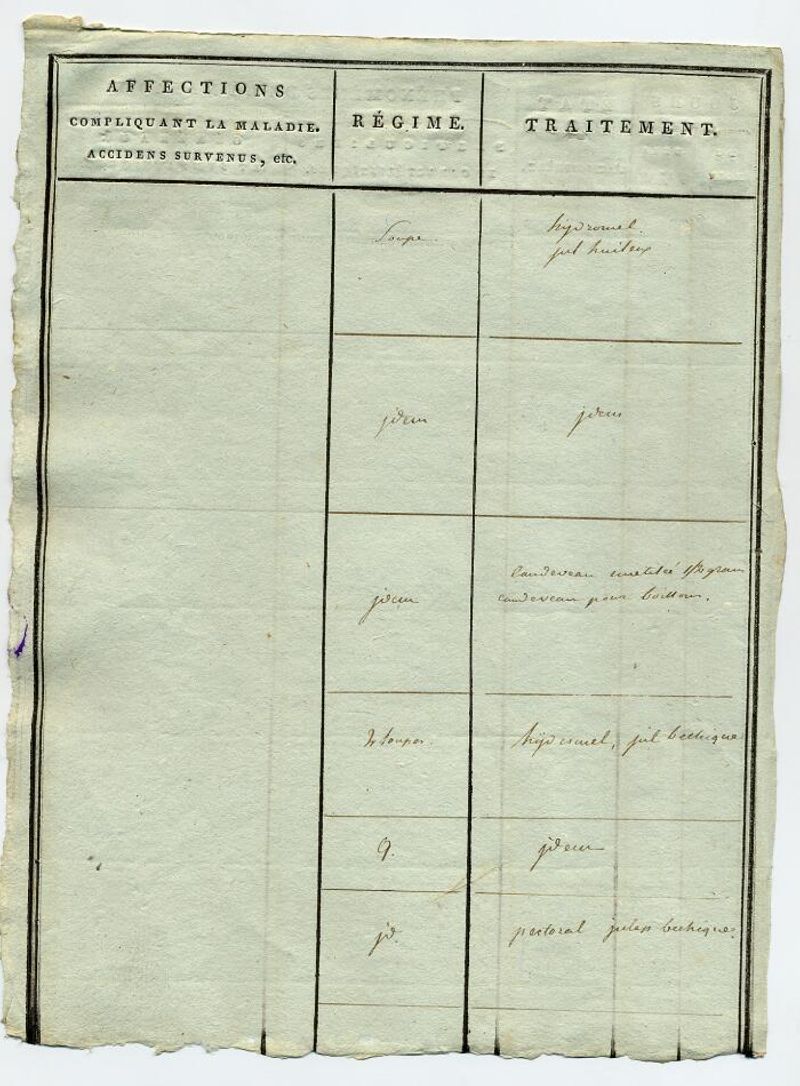 AFFECTIONS
COMPLIQUANT LA MALADIE.
ACCIDENS SURVENUS, etc.
RÉGIME.
TRAITEMENT.
Soupe.
hydromel.
jul huileux
jdem
jdem
jdem
gram
pour boisson.
soupes.
hydromel, jul bechique
jdem
jd.
pectoral julep bechique.